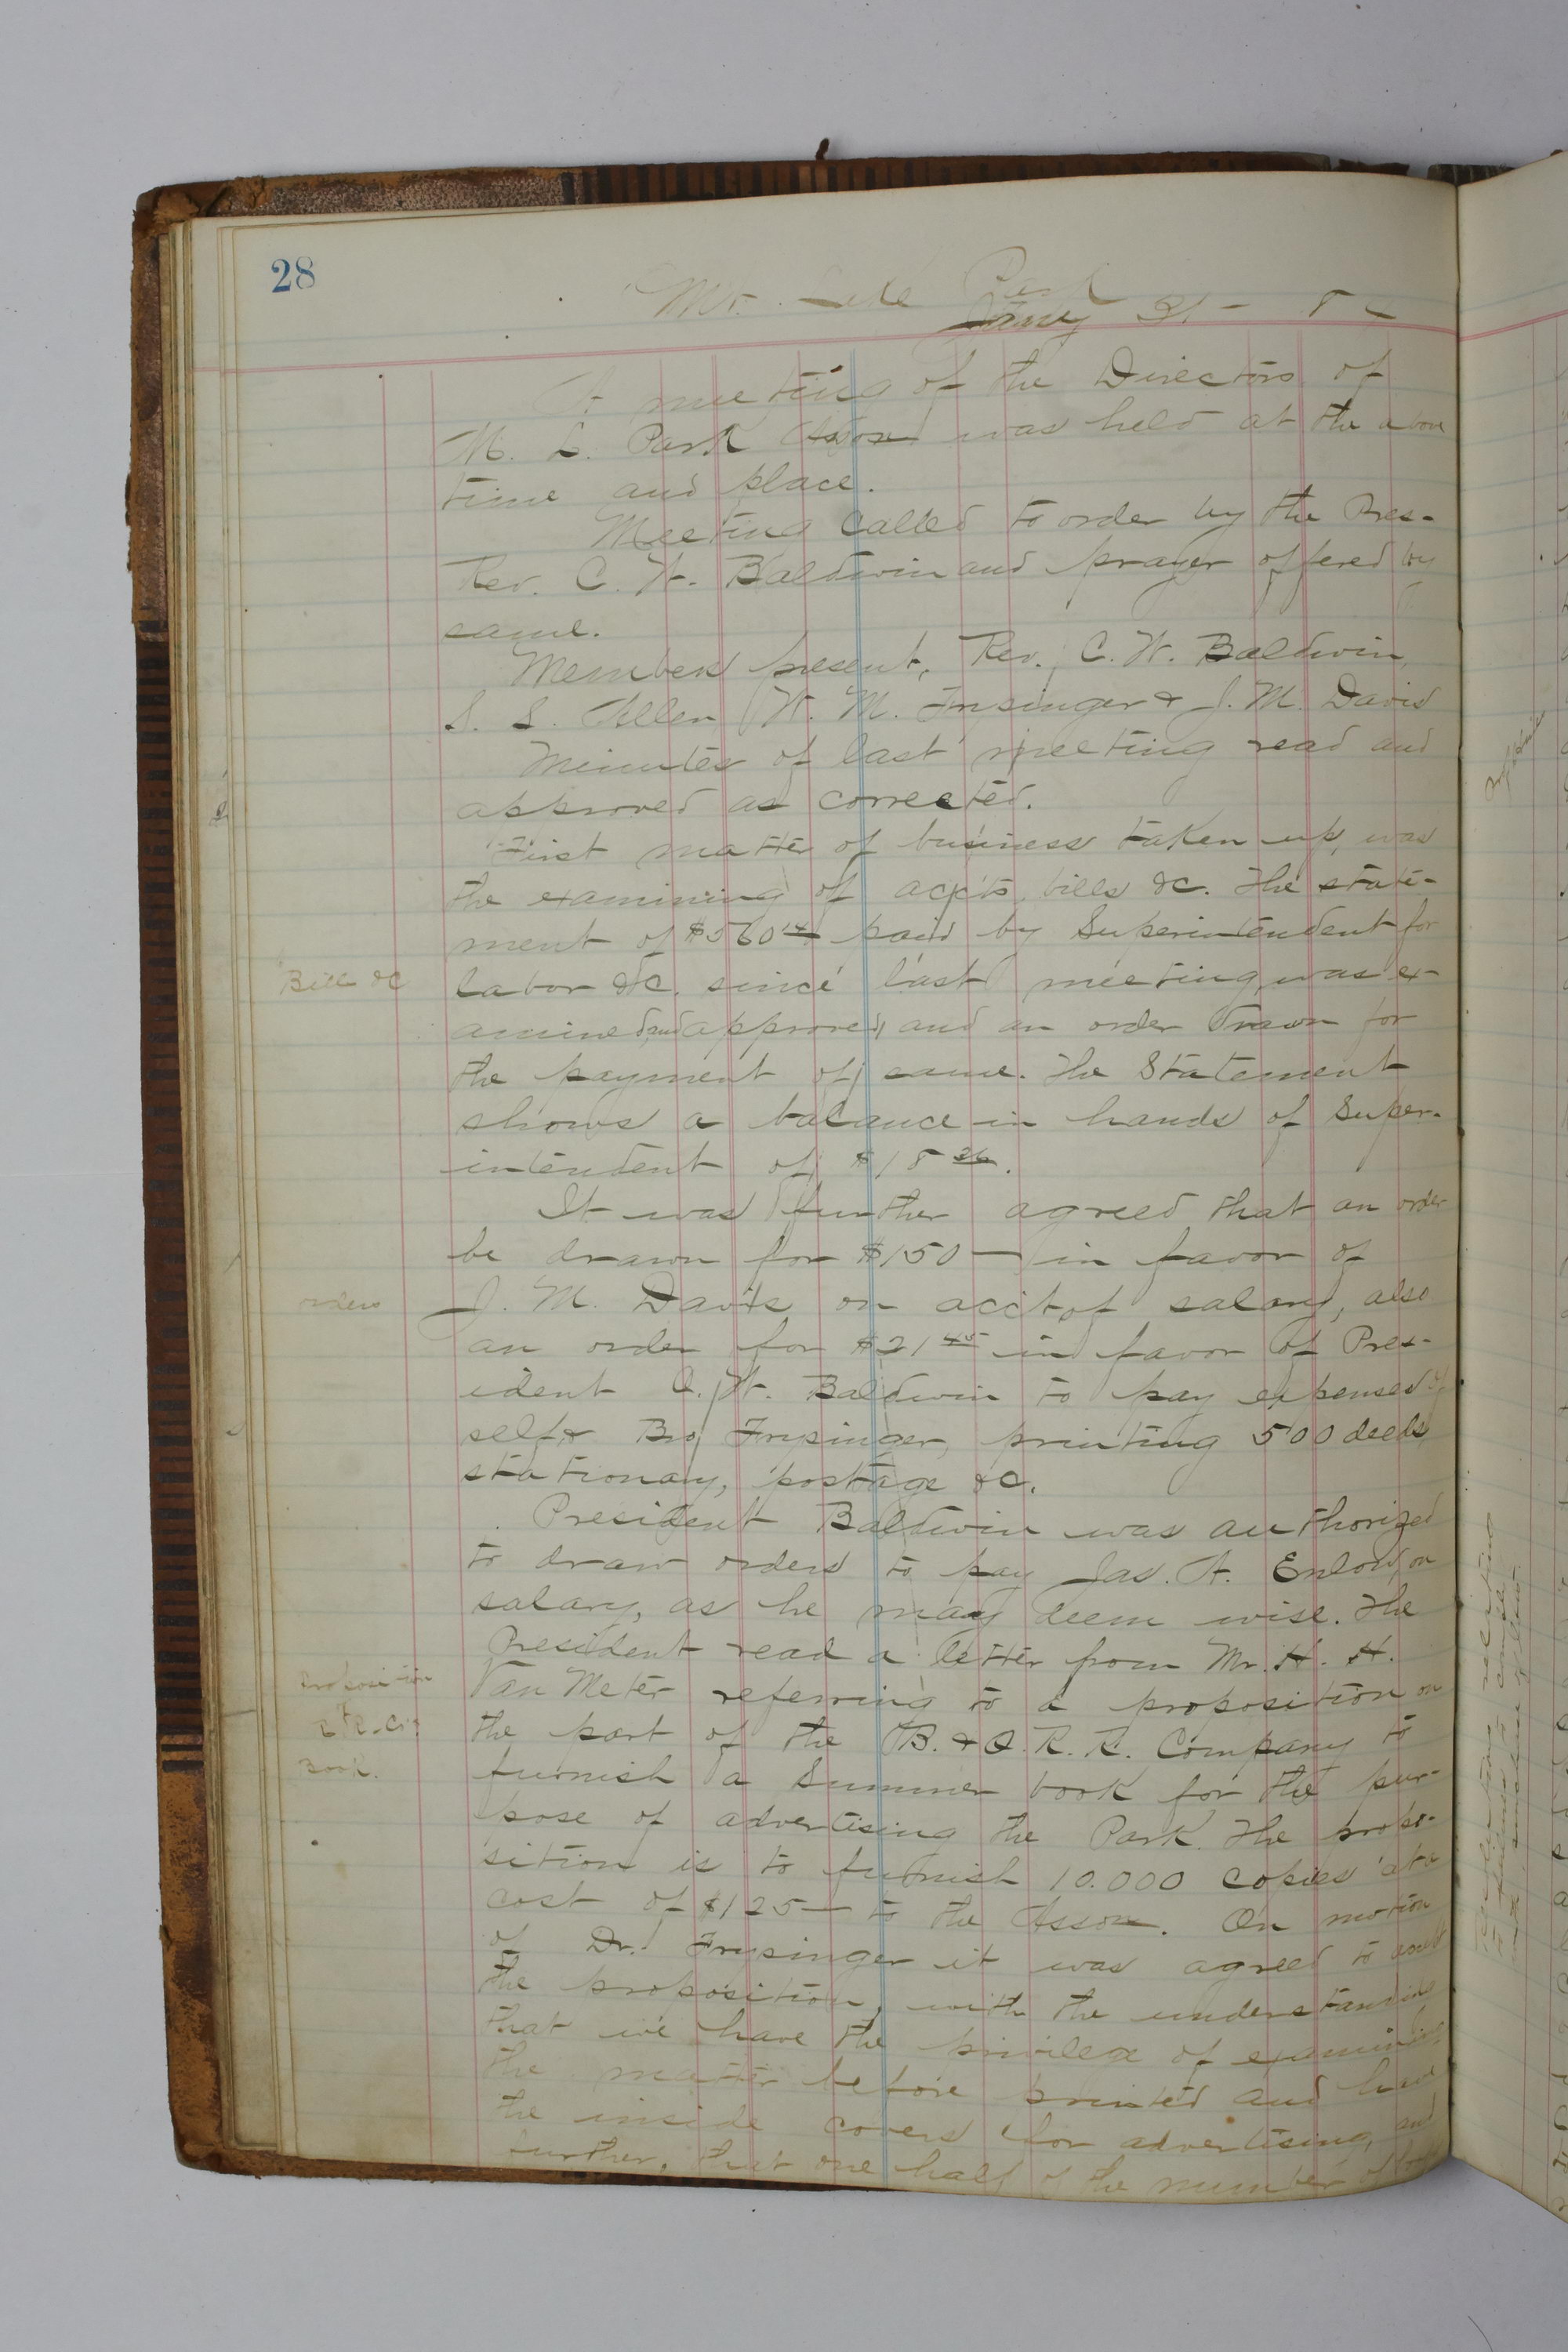 28
Mt. Lake Park
Jany 31 -
A meeting of the Directors of
M. L. Park Asson was held at the above
time and place.
Meeting called to order by the Pres-
Rev. C. W. Baldwin and prayer offered by
same.
Members present, Rev. C. W. Baldwin,
S. L. Allen, W. M. Frysinger & J. M. Davis
Minutes of last meeting read and
approved as corrected.
First matter of business taken up, was
the examining of acc'ts, bills &c. The state-
ment of $560 14 paid by Superintendent for
Bills &c
labor &c. since last meeting, was ex-
amined, and approved, and an order drawn for
the payment of same. The Statement
shows a balance in hands of Super-
intendent of $18 26.
It was further agreed that an order
be drawn for $150 — in favor of
orders
J. M. Davis on acc't of salary, also
an order for $21 45 in favor of Pres-
ident C. W. Baldwin to pay expenses of
self & Bro Frysinger, printing 500 deeds
stationary, postage &c.
President Baldwin was authorized
to draw orders to pay Jas. A. Enlow, on
salary, as he may deem wise. The
President read a letter from Mr. H. H.
Proposition
of
Book.
Van Meter referring to a proposition on
the part of the B. & O. R. R. Company to
furnish a Summer book for the pur-
pose of advertising the Park. The propo-
sition is to furnish 10.000 copies at a
cost of $125 — to the Asson. On motion
of Dr. Frysinger it was agreed to accept
the proposition, with the understanding
that we have the privilege of examining
the matter before printed and have
the inside covers for advertising, and
further, that one half of the number of